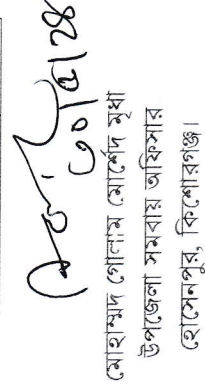 ৩০/৫/২৪
মোহাম্মদ গোলাম মোর্শেদ মৃধা
উপজেলা সমবায় অফিসার
হোসেনপুর, কিশোরগঞ্জ।